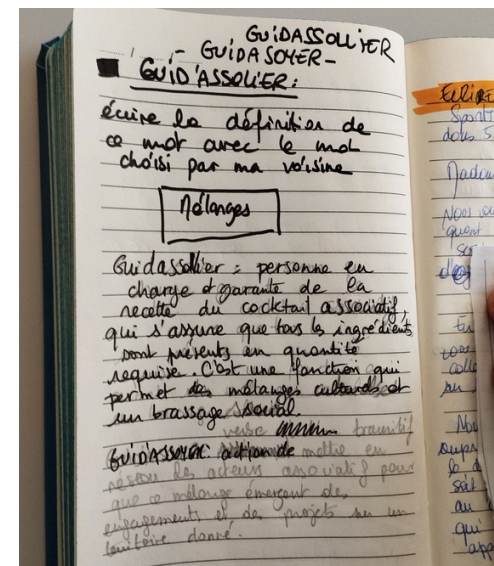 GUIDASSOLLIER
- GUIDASOYER -
GUID'ASSOLIER :
écrire la définition de
ce mot avec le mot
choisi par ma voisine
Mélanges
Guidassollier : personne en
charge et garante de la
recette du cocktail associatif,
qui s'assure que tous les ingrédients
sont présents en quantité
requise. C'est une fonction qui
permet des mélanges culturels et
un brassage social.
verbe transitif
GUID'ASSOYER : action de mettre en
réseau les acteurs associatifs pour
que ce mélange émergent des
engagements et des projets sur un
territoire donné.
Sport
dans 5
Nous